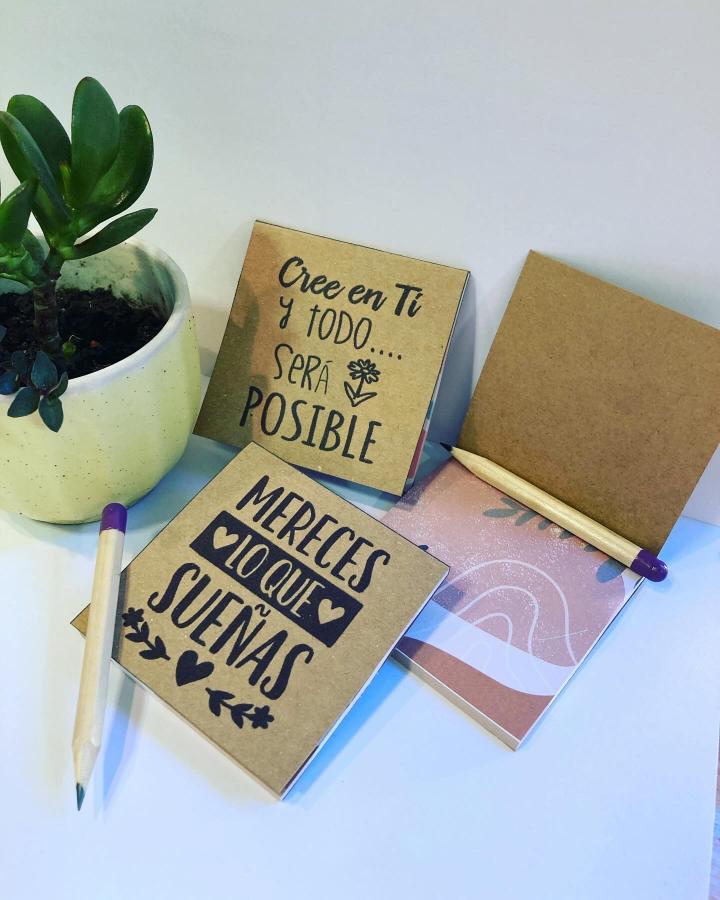 Cree en Ti
y TODO....
SeRÁ
POSIBLE
MERECES
LO QUE
SUEÑAS